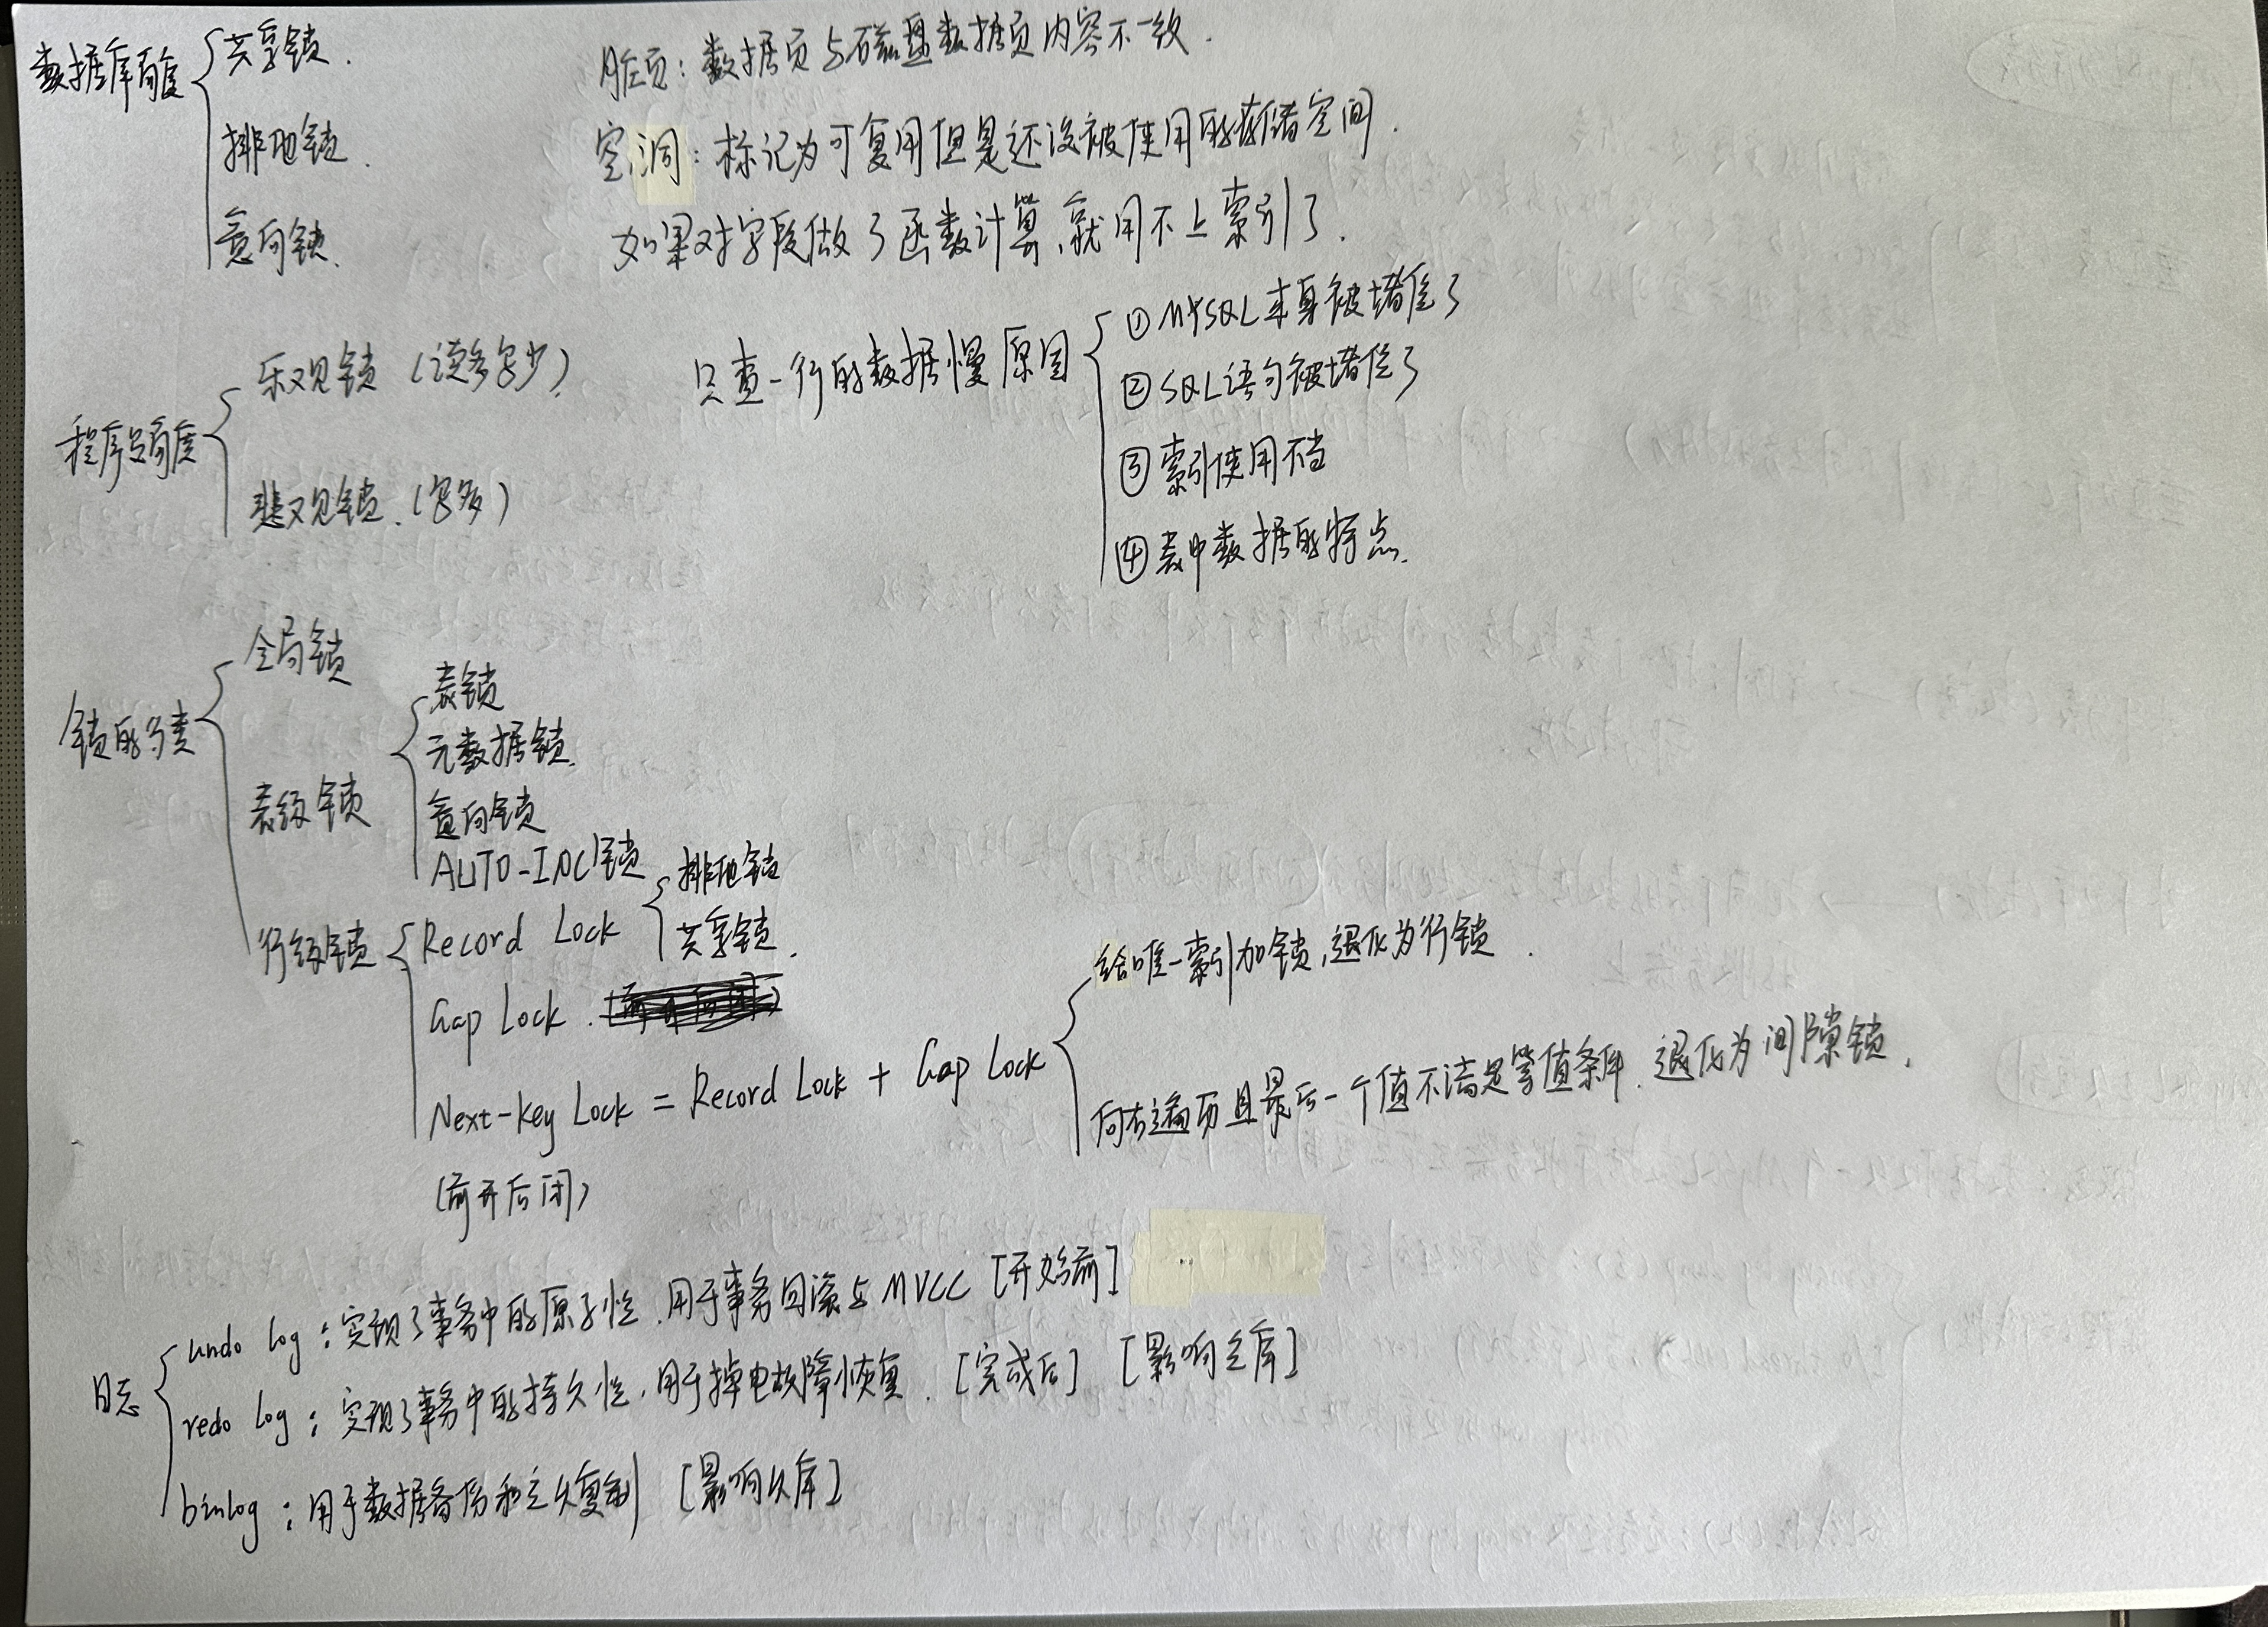 数据库角度
共享锁.
排他锁.
意向锁.
脏页: 数据页与磁盘数据页内容不一致.
空洞: 标记为可复用但是还没被使用的存储空间.
如果对字段做了函数计算,就用不上索引了.
程序员角度
乐观锁 (读多写少)
悲观锁.(写多)
只查一行的数据慢原因
① MYSQL本身被堵住了
② SQL语句被堵住了
③ 索引使用不当
④ 表中数据的特点.
锁的分类
全局锁
表级锁
表锁
元数据锁.
意向锁
AUTO-INC锁
行级锁
Record Lock
排他锁
共享锁.
Gap Lock.
Next-key Lock = Record Lock + Gap Lock
(前开后闭)
给唯一索引加锁,退化为行锁.
向右遍历且最后一个值不满足等值条件.退化为间隙锁.
日志
undo log: 实现了事务中的原子性.用于事务回滚与MVCC [开始前]
redo log: 实现了事务中的持久性,用于掉电故障恢复. [完成后] [影响主库]
binlog: 用于数据备份和主从复制 [影响从库]